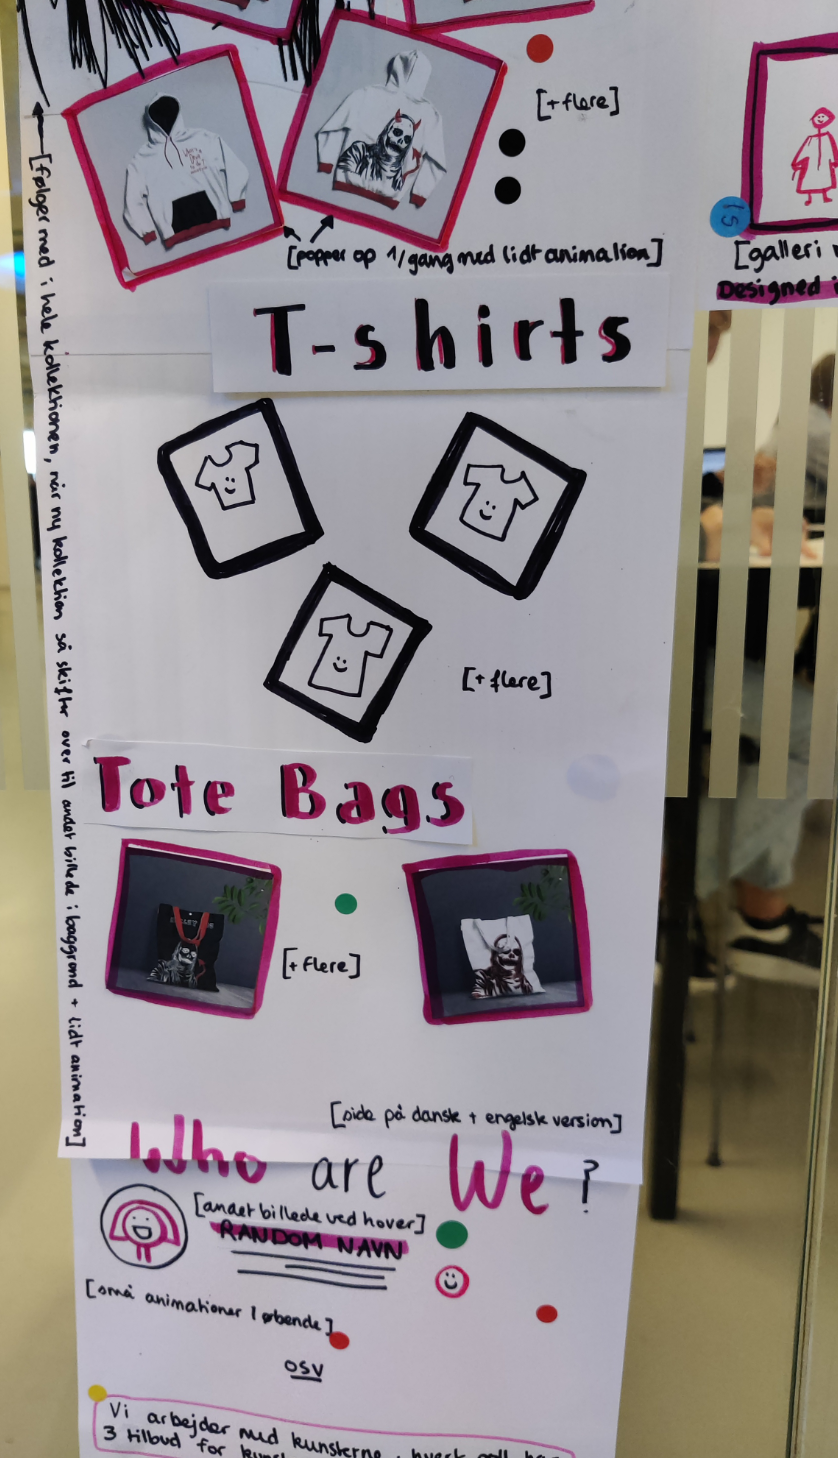 [+flere]
[popper op 1/gang med lidt animation]
[følger med i hele kollektionen, når ny kollektion så skifter over til andet billede i baggrund + lidt animation]
15
[galleri
Designed i
T-shirts
[+ flere]
Tote Bags
[+ flere]
[side på dansk + engelsk version]
Who are We?
[andet billede ved hover]
RANDOM NAVN
[små animationer løbende]
osv
Vi arbejder med kunsterne, hvert
3 tilbud for